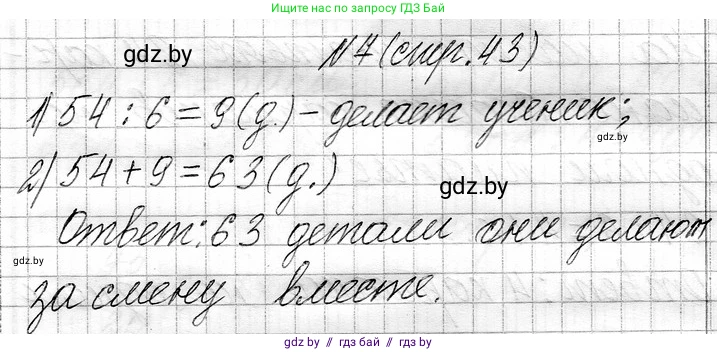 Ищите нас по запросу ГДЗ БАЙ
gdz.by
№7 (стр. 43)
1) 54 : 6 = 9 (д.) – делает ученик;
gdz.by
2) 54 + 9 = 63 (д.)
gdz.by
Ответ: 63 детали они делают
gdz.by
за смену вместе.
gdz.by // гдз бай // гдз бу